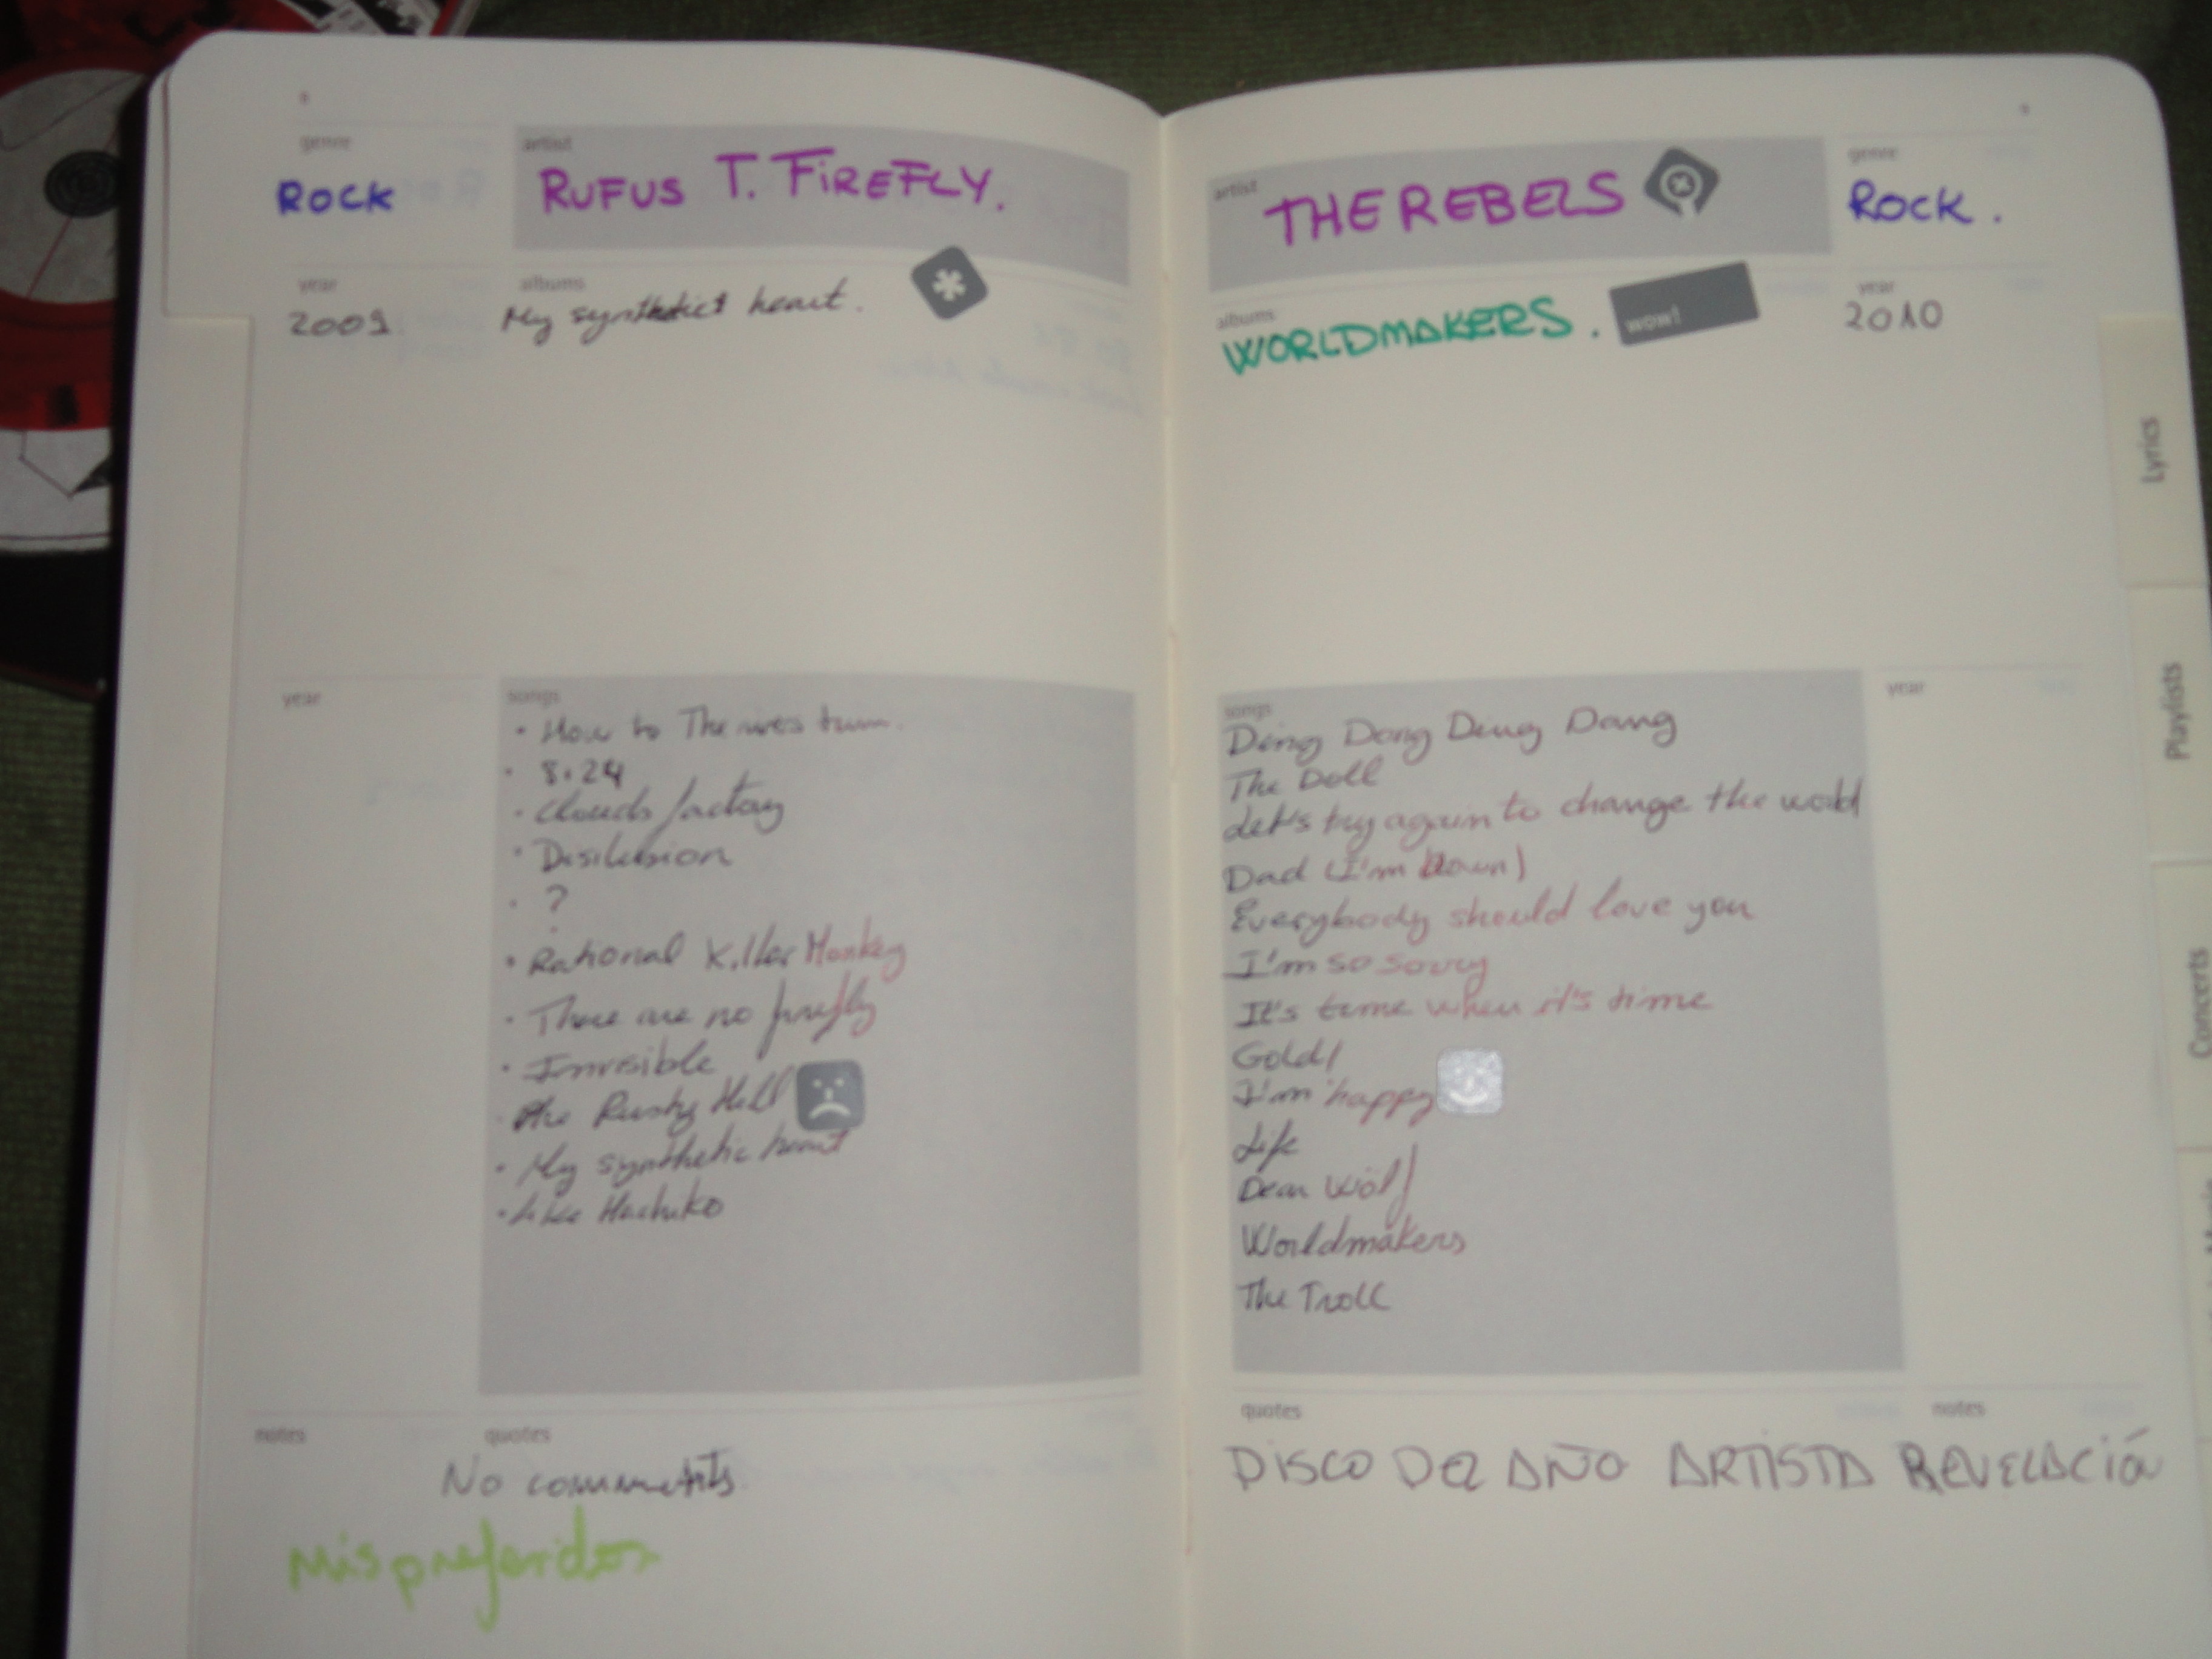 genre
artist
ROCK
RUFUS T. FIREFLY.
year
albums
2009
My synthetict heart.
year
songs
· How to The wes turn.
· 8.24
· Clouds factory
· Disilusion
· ?
· Rational Killer Monkey
· There are no firefly
· Invisible
· The Rusty Hell
· My synthetic heart
· Like Hachiko
notes
quotes
No comments.
Mis preferidos
artist
genre
THE REBELS
ROCK.
albums
year
WORLDMAKERS.
wow!
2010
songs
year
Ding Dong Ding Dang
The Doll
Let's try again to change the world
Dad (I'm Down)
Everybody should love you
I'm so sorry
It's time when it's time
Gold!
I'm happy
Life
Dear Wolf
Worldmakers
The Troll
quotes
notes
DISCO DEL AÑO ARTISTA REVELACIÓN
Lyrics
Playlists
Concerts